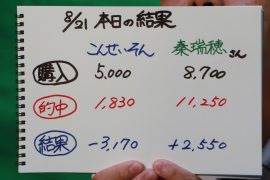 8/21 本日の結果
こんせいそん 秦瑞穂さん
購入 5,000 8,700
的中 1,830 11,250
結果 -3,170 +2,550